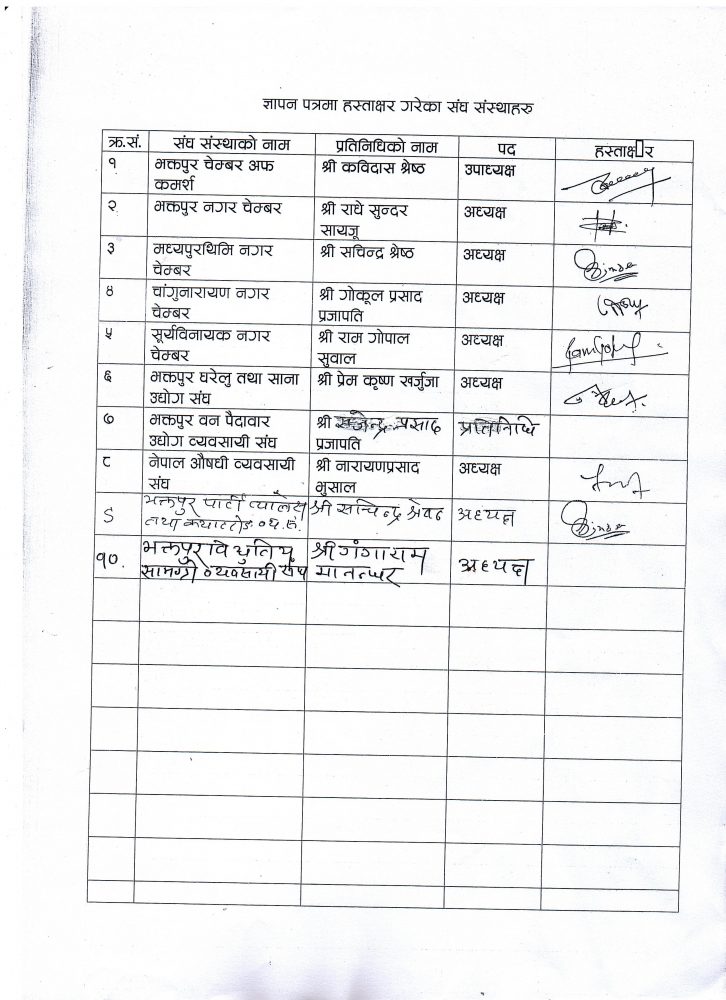 ज्ञापन पत्रमा हस्ताक्षर गरेका संघ संस्थाहरु
क्र.सं. संघ संस्थाको नाम प्रतिनिधिको नाम पद हस्ताक्ष□र
१ भक्तपुर चेम्बर अफ श्री कविदास श्रेष्ठ उपाध्यक्ष
कमर्श
२ भक्तपुर नगर चेम्बर श्री राधे सुन्दर अध्यक्ष
सायजू
३ मध्यपुरथिमि नगर श्री सचिन्द्र श्रेष्ठ अध्यक्ष
चेम्बर
४ चांगुनारायण नगर श्री गोकूल प्रसाद अध्यक्ष
चेम्बर प्रजापति
५ सूर्यविनायक नगर श्री राम गोपाल अध्यक्ष
चेम्बर सुवाल
६ भक्तपुर घरेलु तथा साना श्री प्रेम कृष्ण खर्जुजा अध्यक्ष
उद्योग संघ
७ भक्तपुर वन पैदावार श्री प्रसाद प्रतिनिधि
उद्योग व्यवसायी संघ प्रजापति
८ नेपाल औषधी व्यवसायी श्री नारायणप्रसाद अध्यक्ष
संघ भुसाल
९ भक्तपुर पार्टी प्यालेस श्री सचिन्द्र श्रेष्ठ अध्यक्ष
तथा
१०. भक्तपुर विद्युतिय श्री गंगाराम अध्यक्ष
सामग्री व्यवसायी संघ मानन्धर